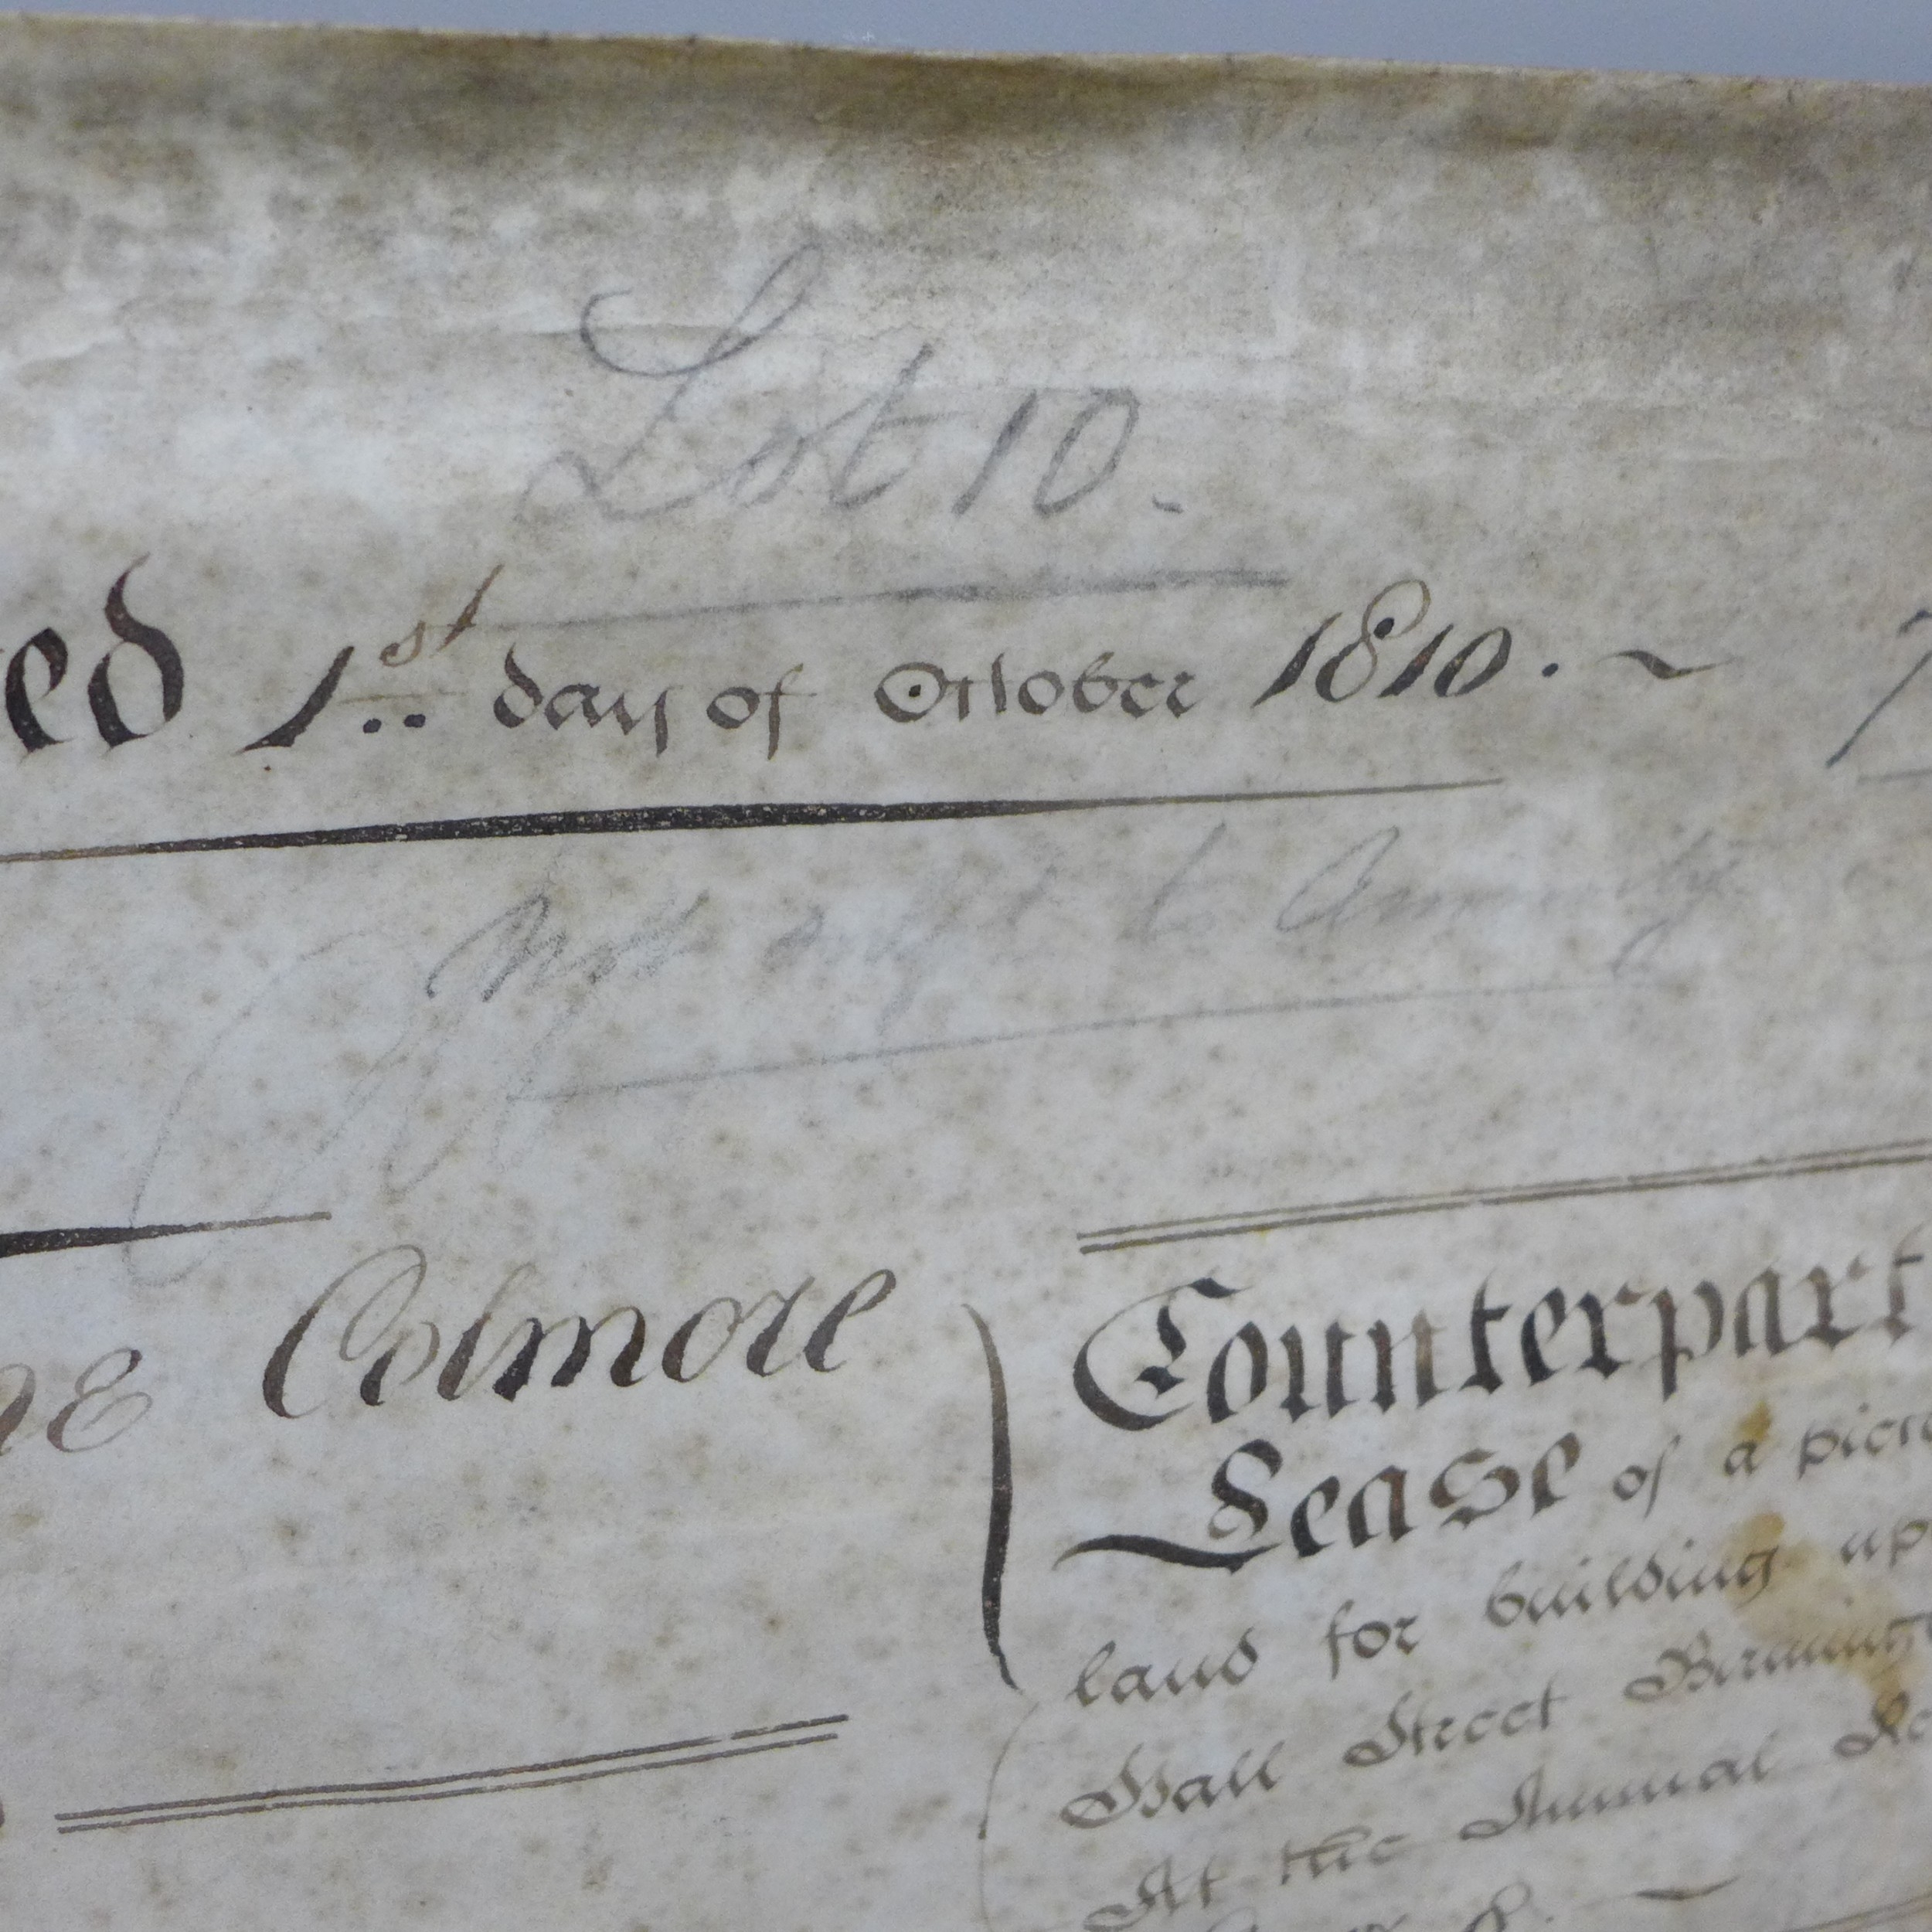 Lot 10.
ed 1st day of October 1810. ~ 7
Not subjt to Annuity
Colmore
Counterpart
Lease of a piece
land for building up
Hall Street Birming
At the Annual Re